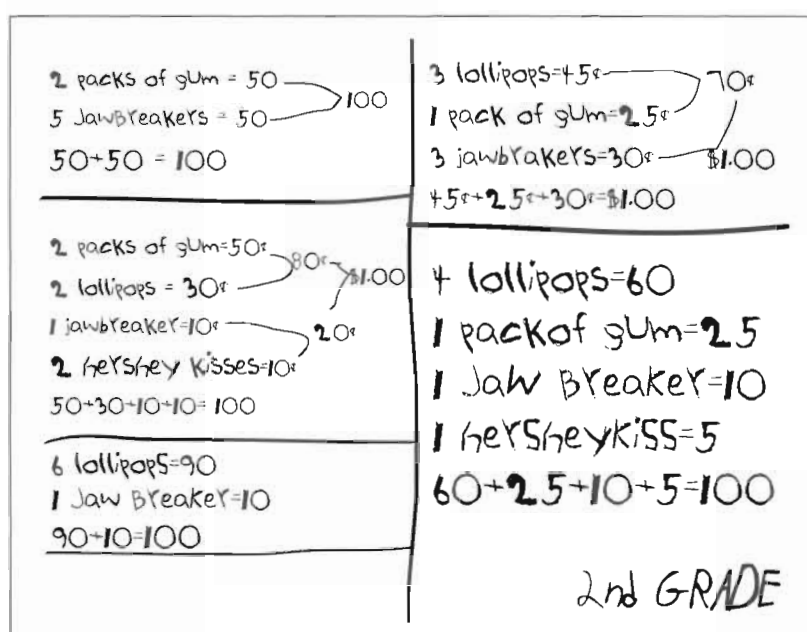 2 packs of gum = 50
5 JawBreakers = 50
100
50+50 = 100
2 packs of gum=50¢
2 lollipops = 30¢
80¢
$1.00
1 jawbreaker=10¢
20¢
2 hershey kisses=10¢
50+30+10+10= 100
6 lollipops=90
1 Jaw Breaker=10
90+10=100
3 lollipops=45¢
70¢
1 pack of gum=25¢
3 jawbrakers=30¢
$1.00
45¢+25¢+30¢=$1.00
4 lollipops=60
1 packof gum=25
1 Jaw Breaker=10
1 hersheykiss=5
60+25+10+5=100
2nd GRADE